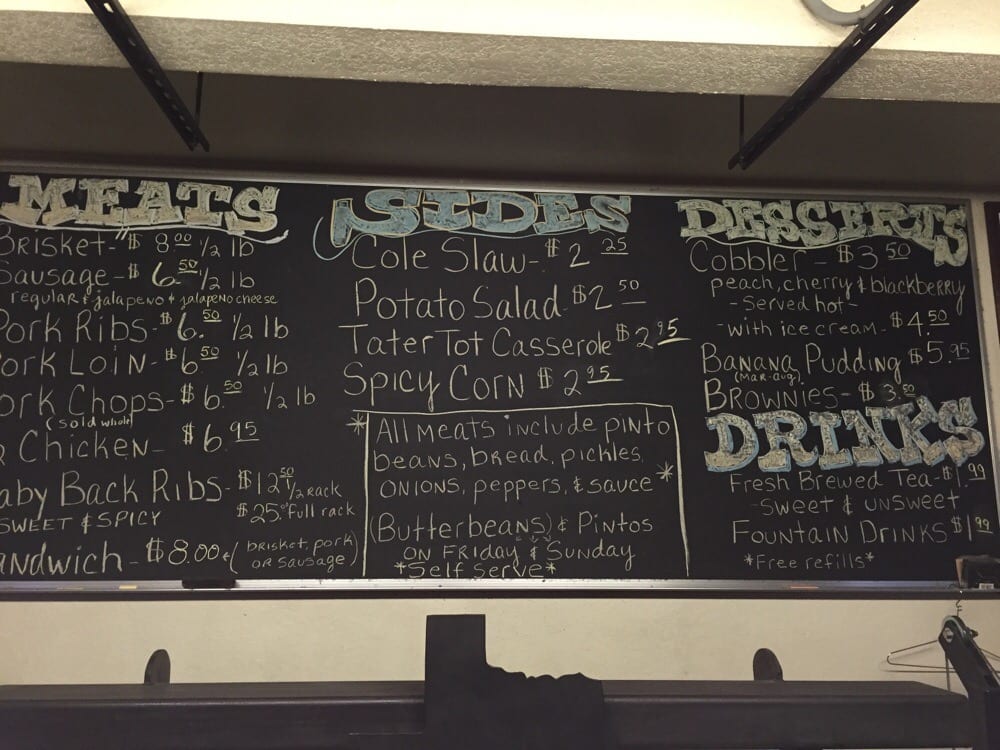 MEATS
Brisket- $8.00 1/2 lb
Sausage - $6.50 1/2 lb
regular & jalapeno & jalapeno cheese
Pork Ribs- $6.50 1/2 lb
ork Loin- $6.50 1/2 lb
ork Chops- $6.50 1/2 lb
(sold whole)
Chicken- $6.95
aby Back Ribs- $12.50 1/2 rack
$25.00 full rack
SWEET & SPICY
andwich - $8.00 (brisket, pork
or sausage)
SIDES
Cole Slaw- $2.25
Potato Salad- $2.50
Tater Tot Casserole $2.95
Spicy Corn $2.95
* All meats include pinto
beans, bread, pickles,
onions, peppers, & sauce *
(Butterbeans) & Pintos
on Friday & Sunday
*Self Serve*
DESSERTS
Cobbler - $3.50
peach, cherry & blackberry
- Served hot -
- with ice cream - $4.50
Banana Pudding $5.95
(Mar-Aug)
Brownies- $3.50
DRINKS
Fresh Brewed Tea- $1.99
-Sweet & unsweet
Fountain Drinks $1.99
*Free refills*